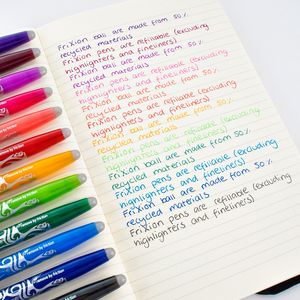 FriXion ball are made from 50%
recycled materials
FriXion pens are refillable (excluding
highlighters and fineliners)
FriXion ball are made from 50%
recycled materials
FriXion pens are refillable (excluding
highlighters and fineliners)
FriXion ball are made from 50%
recycled materials
FriXion pens are refillable (excluding
highlighters and fineliners)
FriXion ball are made from 50%
recycled materials
FriXion pens are refillable (excluding
highlighters and fineliners)
FriXion ball are made from 50%
recycled materials
FriXion pens are refillable (excluding
highlighters and fineliners)
FriXion ball are made from 50%
recycled materials
FriXion pens are refillable (excluding
highlighters and fineliners)